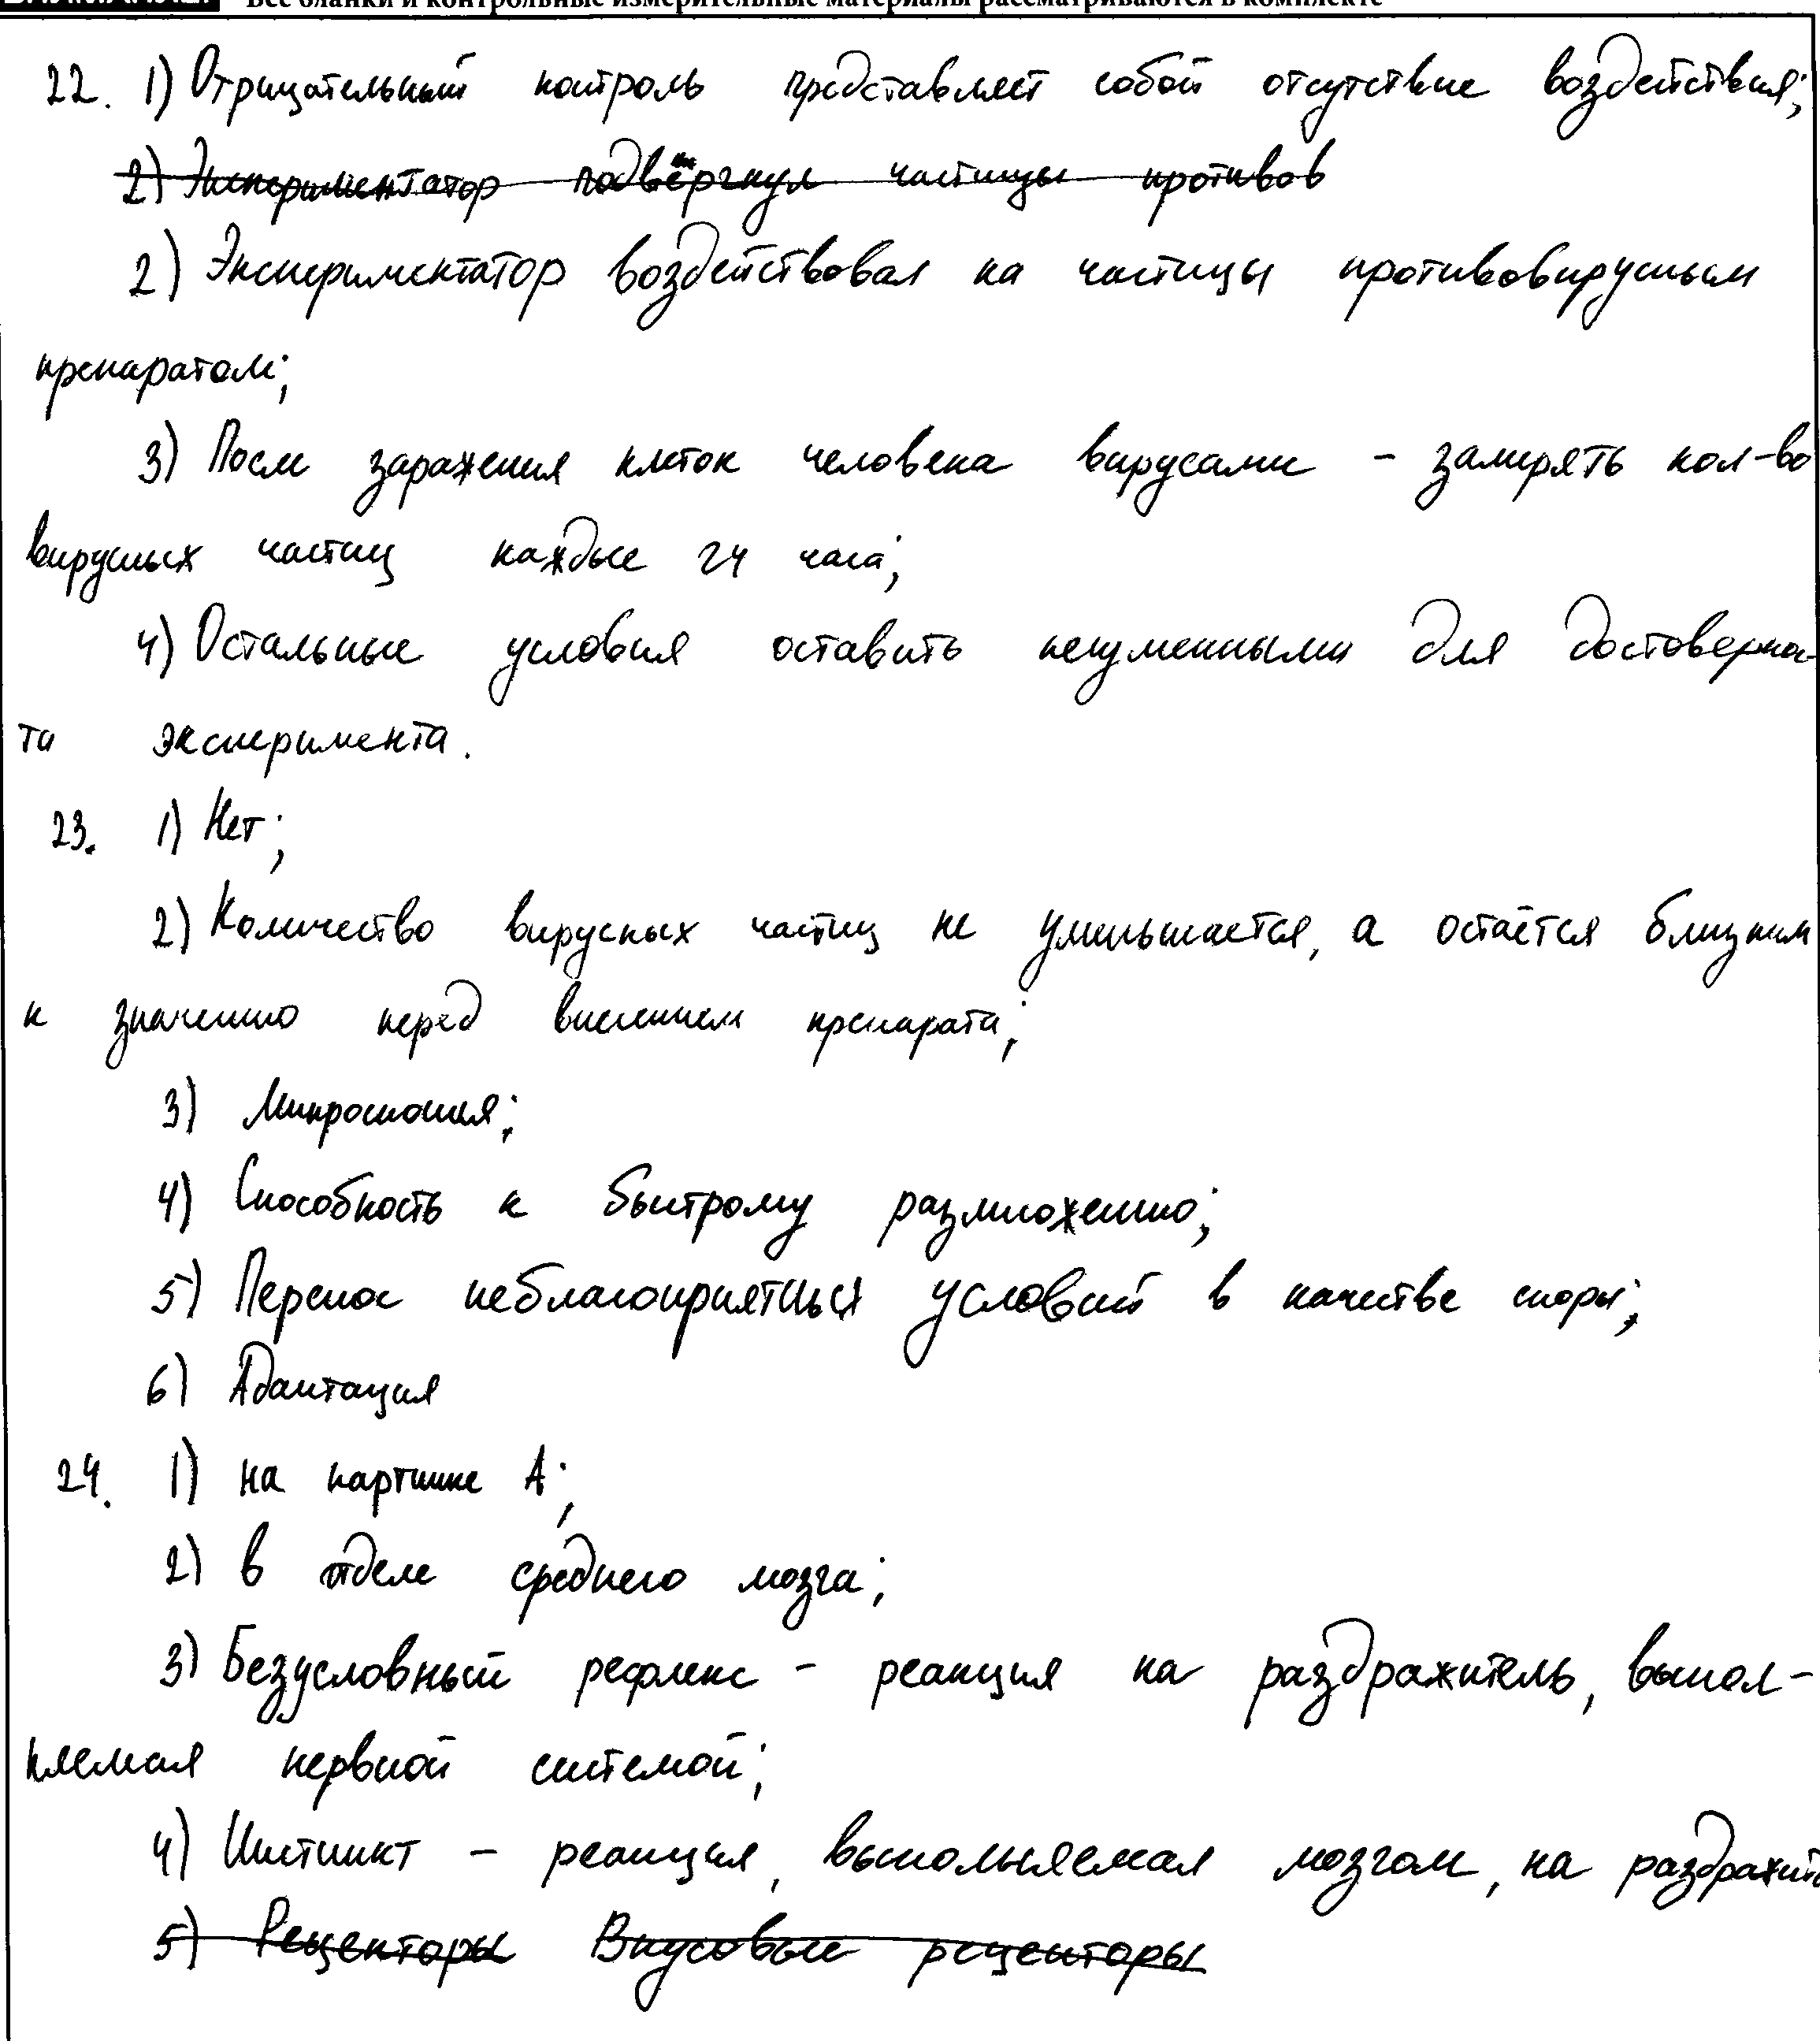 Все бланки и контрольные измерительные материалы рассматриваются в комплекте
22. 1) Отрицательный контроль представляет собой отсутствие воздействия;
2) Экспериментатор подвергнул частицы противов
2) Экспериментатор воздействовал на частицы противовирусным
препаратом;
3) После заражения клеток человека вирусами - замерять кол-во
вирусных частиц каждые 24 часа;
4) Остальные условия оставить неизменными для достоверно-
ти эксперимента.
23. 1) Нет;
2) Количество вирусных частиц не уменьшается, а остаётся близким
к значению перед внесением препарата;
3) Микроскопия;
4) Способность к быстрому размножению;
5) Перенос неблагоприятных условий в качестве споры;
6) Адаптация
24. 1) на картинке А;
2) в отделе среднего мозга;
3) Безусловный рефлекс - реакция на раздражитель, выпол-
няемая нервной системой;
4) Инстинкт - реакция, выполняемая мозгом, на раздражите
5) Рецепторы Вкусовые рецепторы